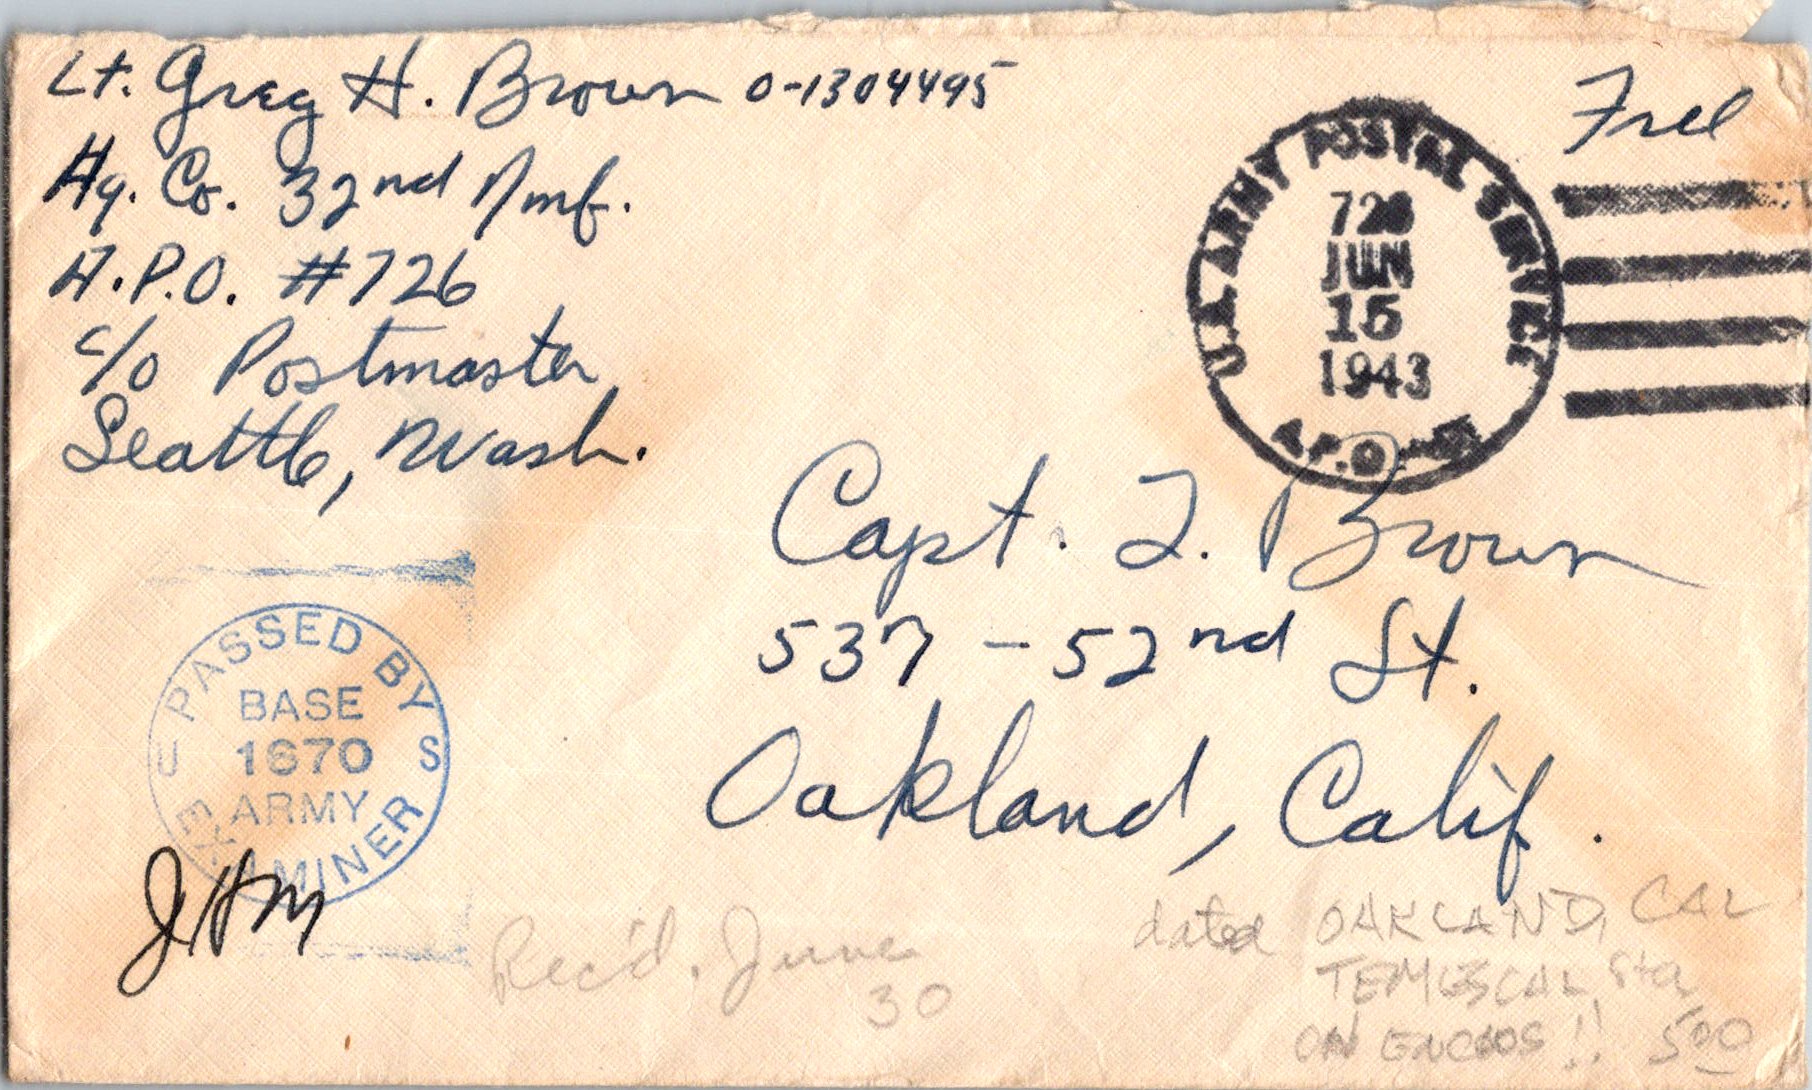 Lt. Greg H. Brown 0-1304495
Hq. Co. 32nd Inf.
A.P.O. #726
c/o Postmaster
Seattle, Wash.
Free
U.S. ARMY POSTAL SERVICE
726
JUN
15
1943
A.P.O.
Capt. T. Brown
537 - 52nd St.
Oakland, Calif.
PASSED BY
BASE
U 1670 S
ARMY
EXAMINER
JHM
Rec'd. June
30
dated OAKLAND, CAL
TEMESCAL Sta
ON ENCLOS!! 5.00